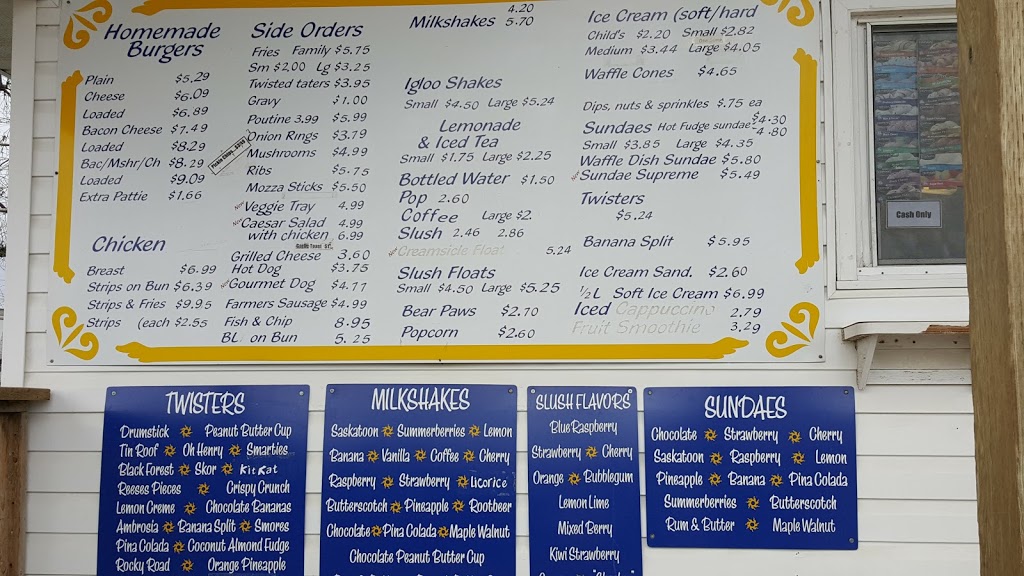 Homemade
Burgers
Plain $5.29
Cheese $6.09
Loaded $6.89
Bacon Cheese $7.49
Loaded $8.29
Bac/Mshr/Ch $8.29
Loaded $9.09
Extra Pattie $1.66
Chicken
Breast $6.99
Strips on Bun $6.39
Strips & Fries $9.95
Strips (each $2.55
Side Orders
Fries Family $5.75
Sm $2.00 Lg $3.25
Twisted taters $3.95
Gravy $1.00
Poutine 3.99 $5.99
Onion Rings $3.79
Mushrooms $4.99
Ribs $5.75
Mozza Sticks $5.50
Veggie Tray 4.99
Caesar Salad 4.99
with chicken 6.99
Grilled Cheese 3.60
Hot Dog $3.75
Gourmet Dog $4.77
Farmers Sausage $4.99
Fish & Chip 8.95
BL on Bun 5.25
4.20
Milkshakes 5.70
Igloo Shakes
Small $4.50 Large $5.24
Lemonade
& Iced Tea
Small $1.75 Large $2.25
Bottled Water $1.50
Pop 2.60
Coffee Large $2.
Slush 2.46 2.86
Creamsicle Float 5.24
Slush Floats
Small $4.50 Large $5.25
Bear Paws $2.70
Popcorn $2.60
Ice Cream (soft/hard
Child's $2.20 Small $2.82
Medium $3.44 Large $4.05
Waffle Cones $4.65
Dips, nuts & sprinkles $.75 ea
$4.30
Sundaes Hot Fudge sundae 4.80
Small $3.85 Large $4.35
Waffle Dish Sundae $5.80
Sundae Supreme $5.49
Twisters
$5.24
Banana Split $5.95
Ice Cream Sand. $2.60
½ L Soft Ice Cream $6.99
Iced Cappuccino 2.79
Fruit Smoothie 3.29
Cash Only
TWISTERS
Drumstick Peanut Butter Cup
Tin Roof Oh Henry Smarties
Black Forest Skor Kit Kat
Reeses Pieces Crispy Crunch
Lemon Creme Chocolate Bananas
Ambrosia Banana Split Smores
Pina Colada Coconut Almond Fudge
Rocky Road Orange Pineapple
MILKSHAKES
Saskatoon Summerberries Lemon
Banana Vanilla Coffee Cherry
Raspberry Strawberry Licorice
Butterscotch Pineapple Rootbeer
Chocolate Pina Colada Maple Walnut
Chocolate Peanut Butter Cup
SLUSH FLAVORS
Blue Raspberry
Strawberry Cherry
Orange Bubblegum
Lemon Lime
Mixed Berry
Kiwi Strawberry
SUNDAES
Chocolate Strawberry Cherry
Saskatoon Raspberry Lemon
Pineapple Banana Pina Colada
Summerberries Butterscotch
Rum & Butter Maple Walnut